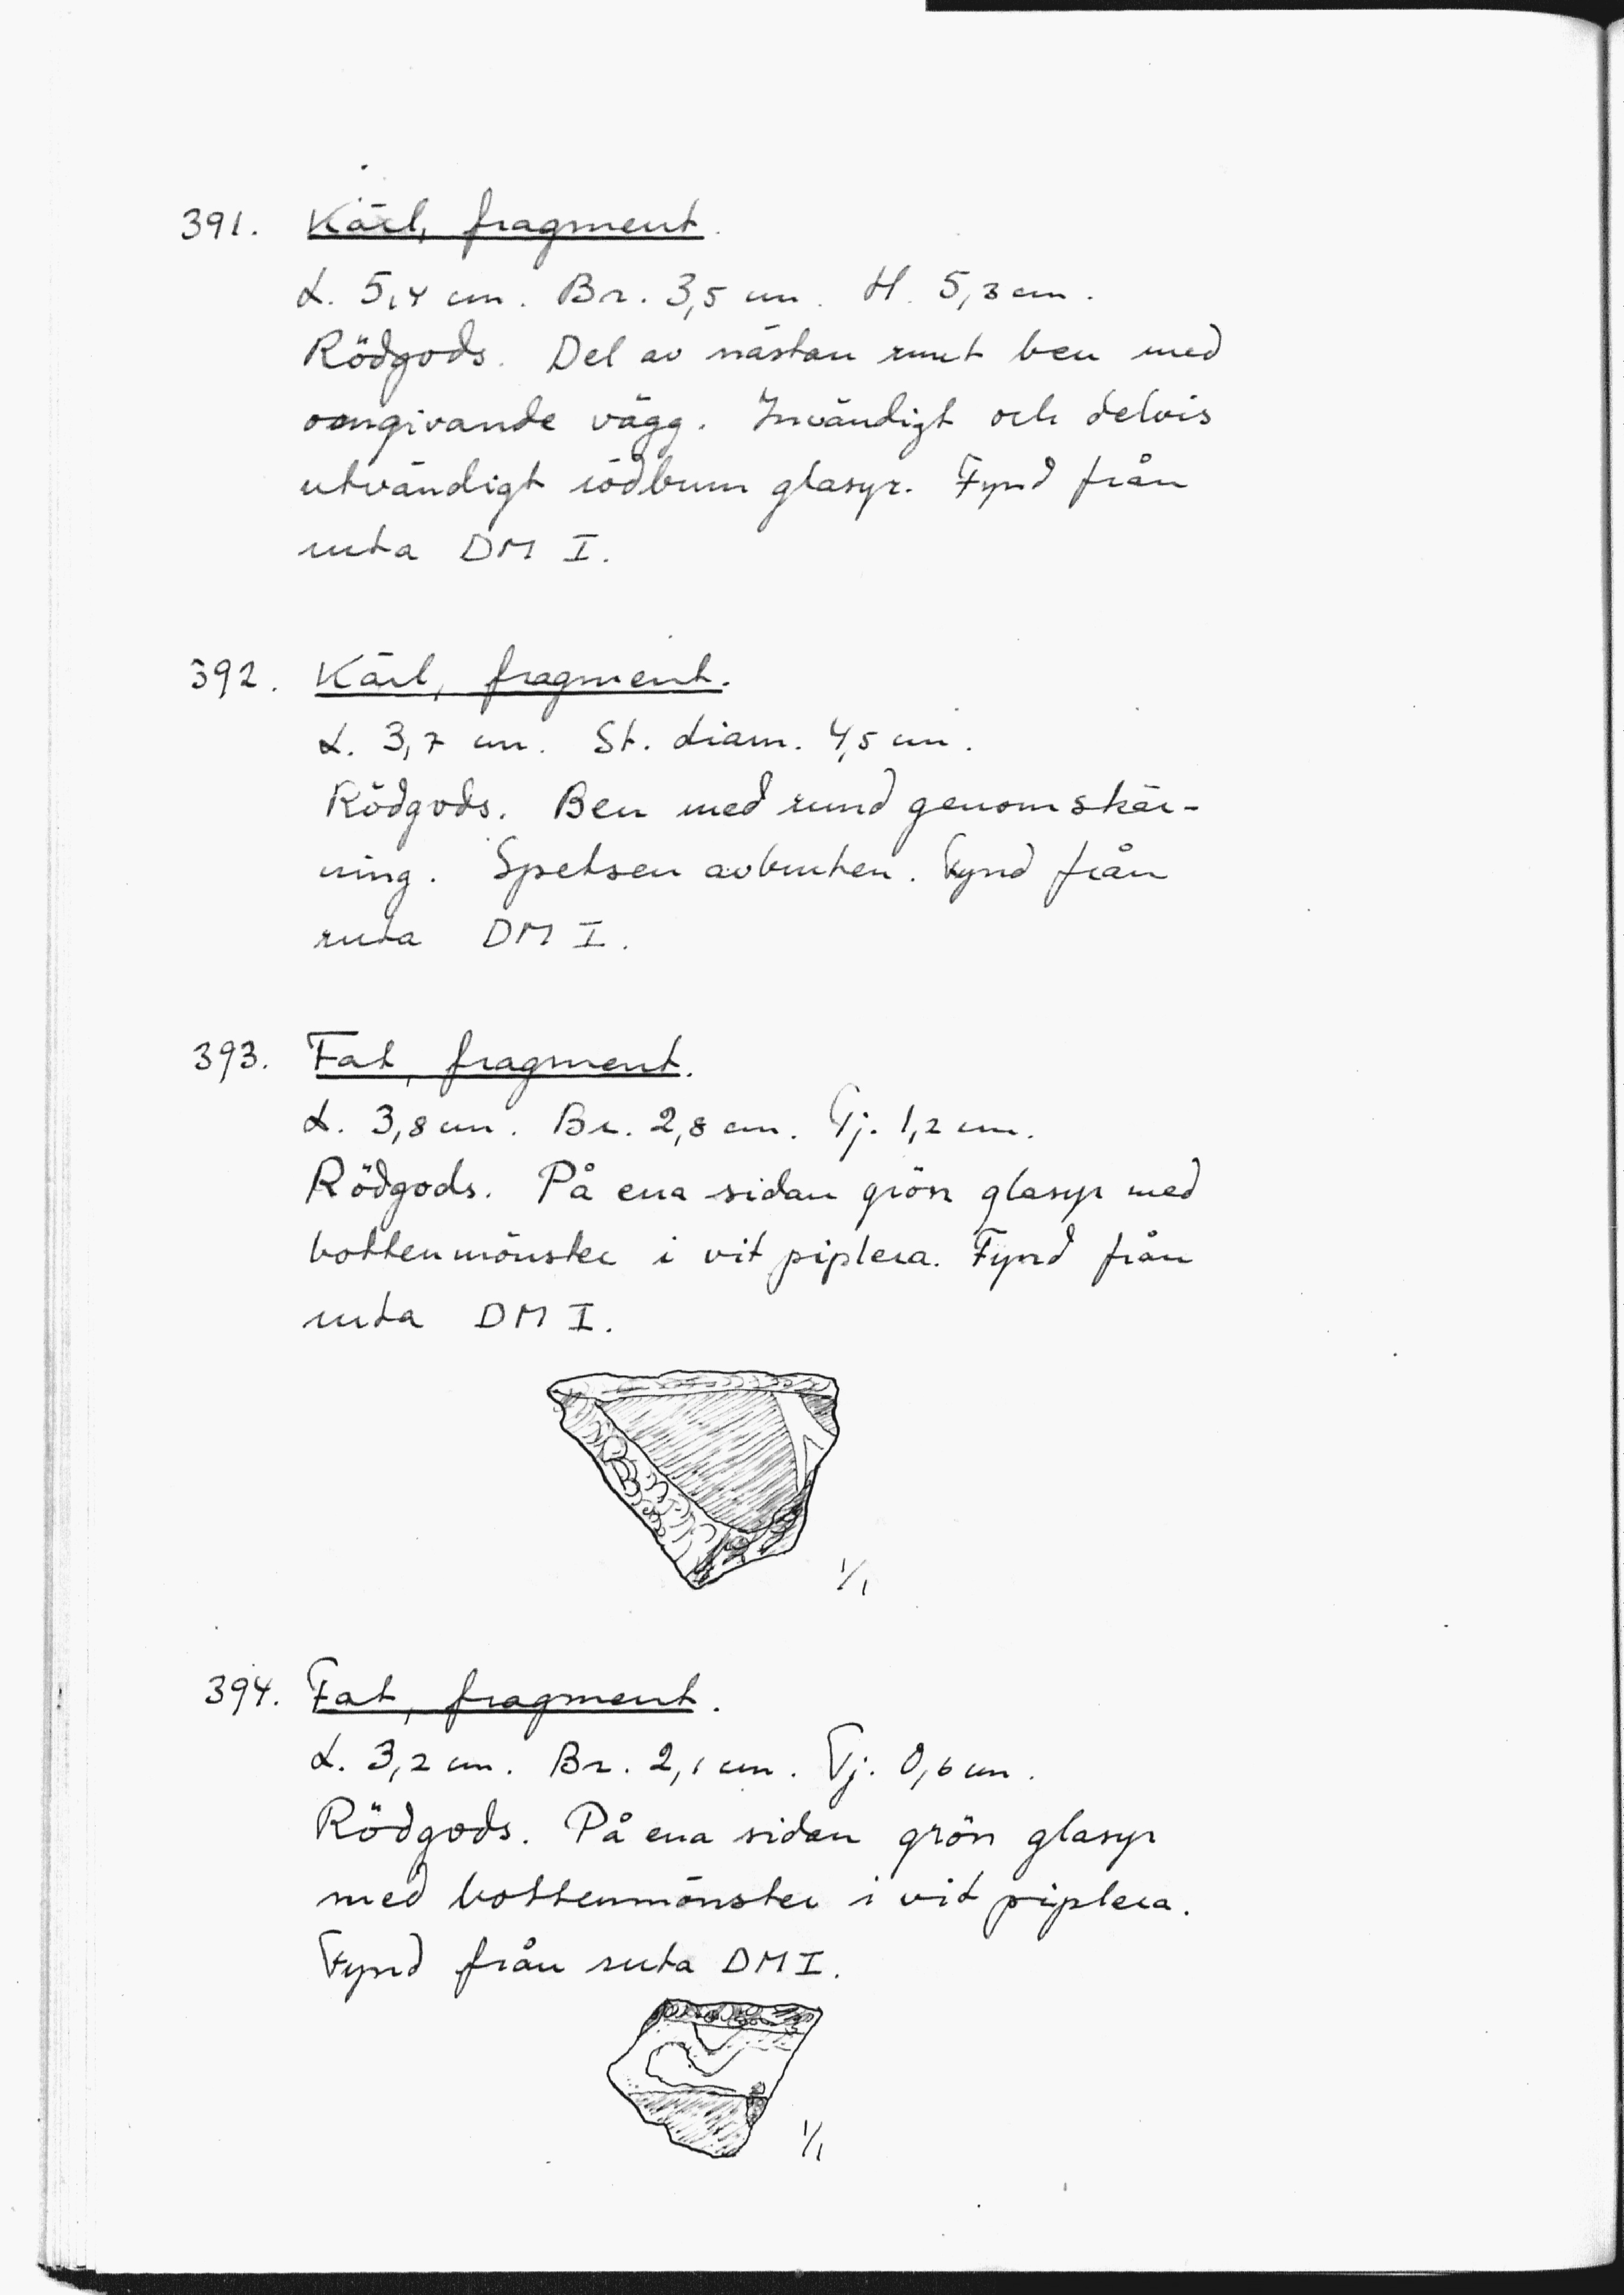 391. Kärl, fragment.
L. 5,4 cm. Br. 3,5 cm. H. 5,3 cm.
Rödgods. Del av nästan runt ben med
omgivande vägg. Invändigt och delvis
utvändigt rödbrun glasyr. Fynd från
ruta DM I.
392. Kärl, fragment.
L. 3,7 cm. St. diam. 4,5 cm.
Rödgods. Ben med rund genomskär-
ning. Spetsen avbruten. Fynd från
ruta DM I.
393. Fat, fragment.
L. 3,8 cm. Br. 2,8 cm. Tj. 1,2 cm.
Rödgods. På ena sidan grön glasyr med
bottenmönster i vit piplera. Fynd från
ruta DM I.
1/1
394. Fat, fragment.
L. 3,2 cm. Br. 2,1 cm. Tj. 0,6 cm.
Rödgods. På ena sidan grön glasyr
med bottenmönster i vit piplera.
Fynd från ruta DM I.
1/1